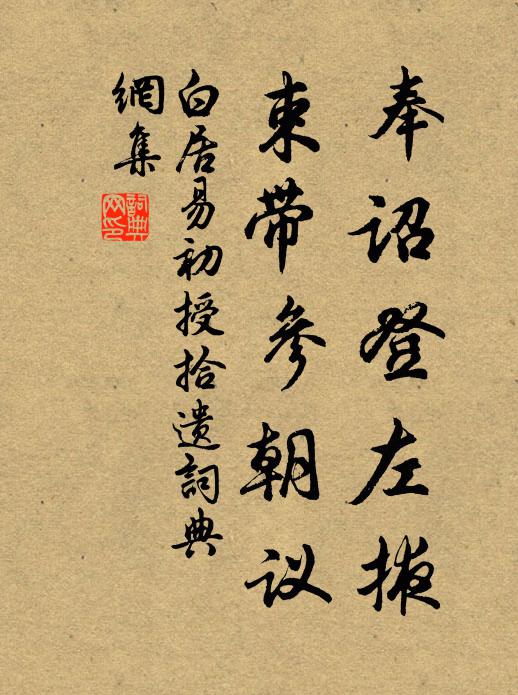 奉詔登左掖
束帶參朝议
白居易初授拾遺詞典
網集
詞典网印